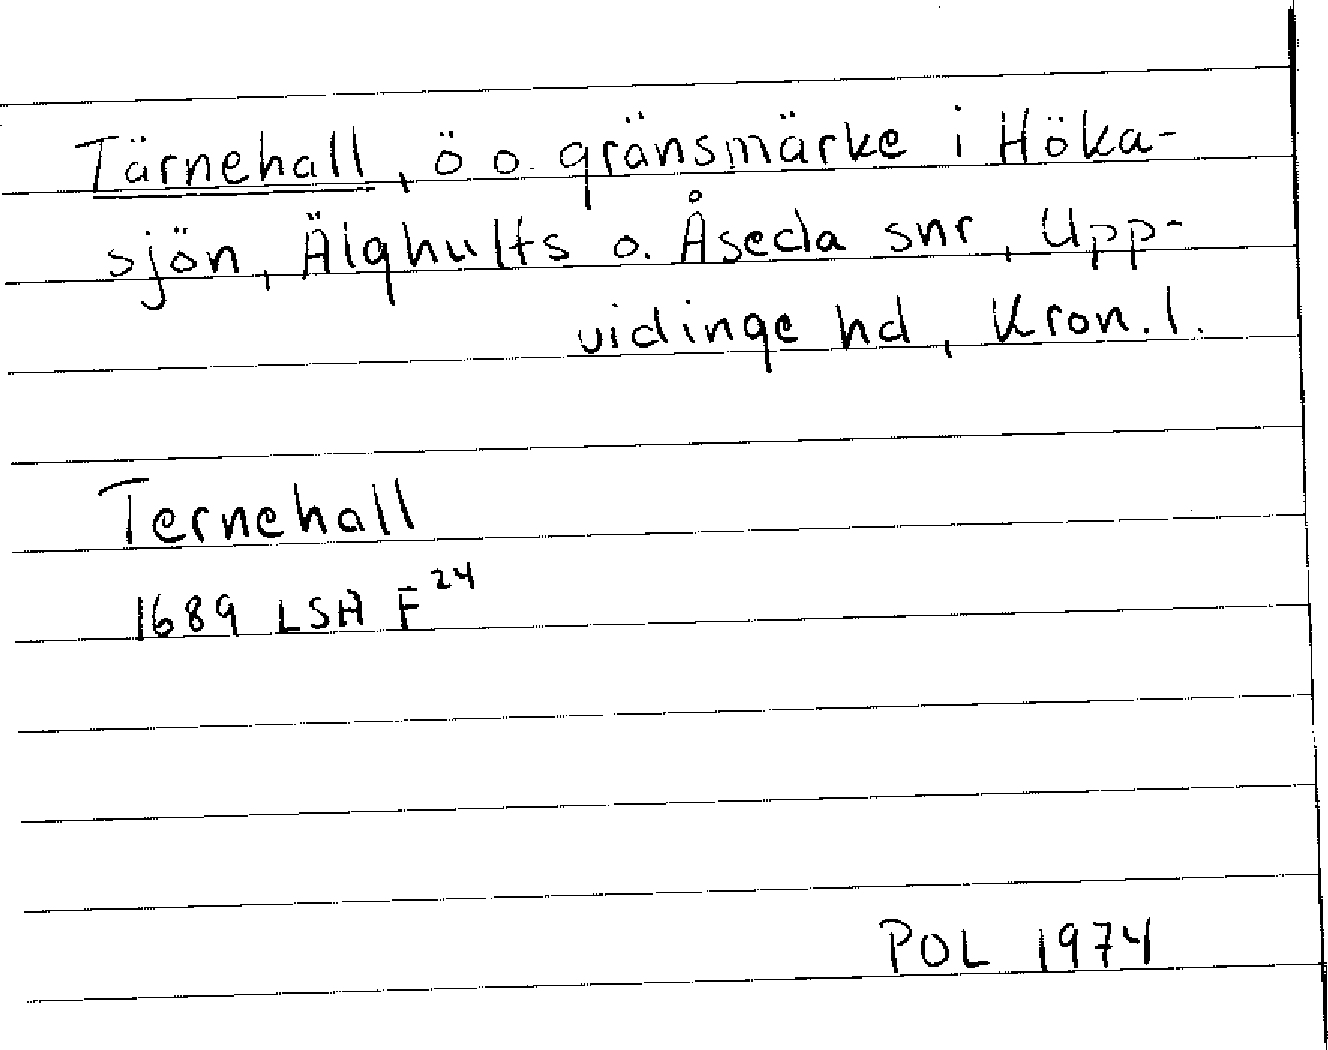 Tärnehall, ö o. gränsmärke i Höka-
sjön, Älghults o. Åseda snr, Upp-
vidinge hd, Kron. l.
Ternehall
1689 LSA F 24
POL 1974